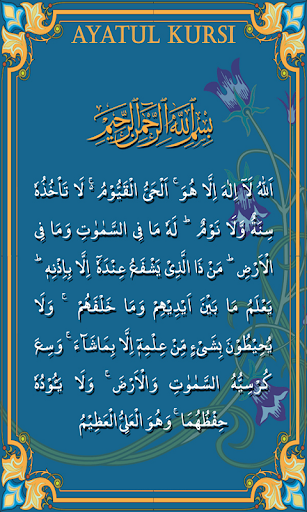 AYATUL KURSI
بِسْمِ اللهِ الرَّحْمٰنِ الرَّحِيْمِ
اَللهُ لَآ اِلٰهَ اِلَّا هُوَ ۚ اَلْحَيُّ الْقَيُّوْمُ ۬ۚ لَا تَاْخُذُهٗ
سِنَةٌ وَّلَا نَوْمٌ ؕ لَهٗ مَا فِى السَّمٰوٰتِ وَمَا فِى
الْاَرْضِ ؕ مَنْ ذَا الَّذِىْ يَشْفَعُ عِنْدَهٗٓ اِلَّا بِاِذْنِهٖ ؕ
يَعْلَمُ مَا بَيْنَ اَيْدِيْهِمْ وَمَا خَلْفَهُمْ ۚ وَلَا
يُحِيْطُوْنَ بِشَىْءٍ مِّنْ عِلْمِهٖٓ اِلَّا بِمَاشَآءَ ۚ وَسِعَ
كُرْسِيُّهُ السَّمٰوٰتِ وَالْاَرْضَ ۚ وَلَا يَـُٔوْدُهٗ
حِفْظُهُمَا ۚ وَهُوَ الْعَلِىُّ الْعَظِيْمُ